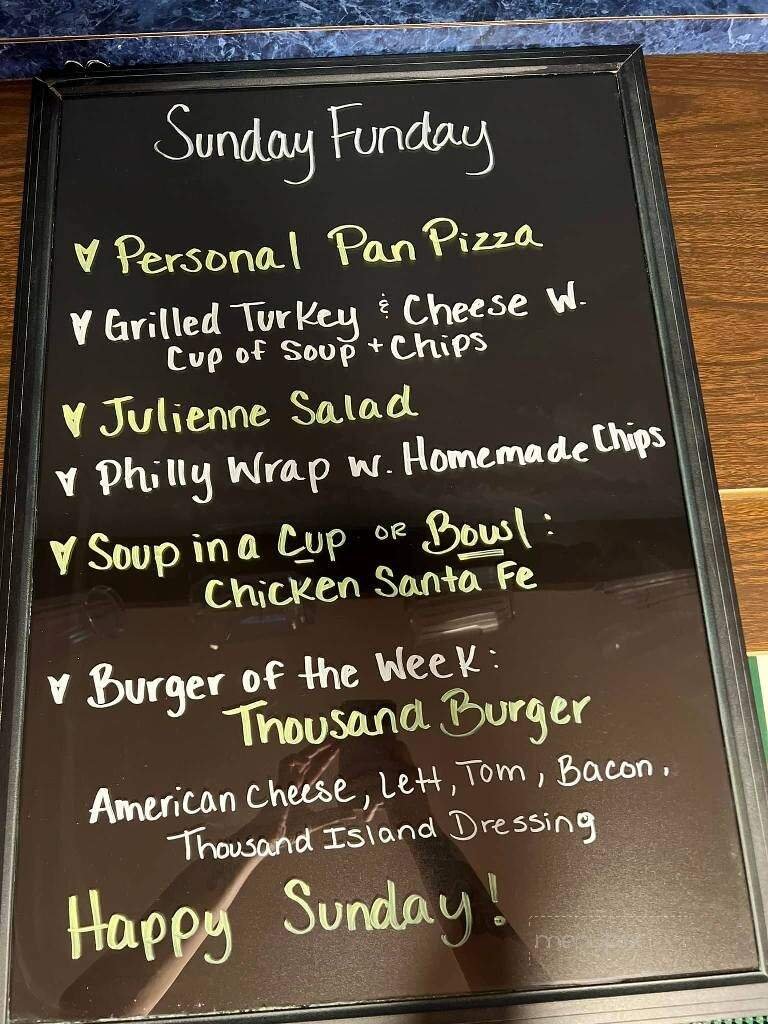 Sunday Funday
Personal Pan Pizza
Grilled Turkey & Cheese W.
Cup of Soup + Chips
Julienne Salad
Philly Wrap w. Homemade Chips
Soup in a Cup OR Bowl:
Chicken Santa Fe
Burger of the Week:
Thousand Burger
American Cheese, Lett, Tom, Bacon,
Thousand Island Dressing
Happy Sunday!